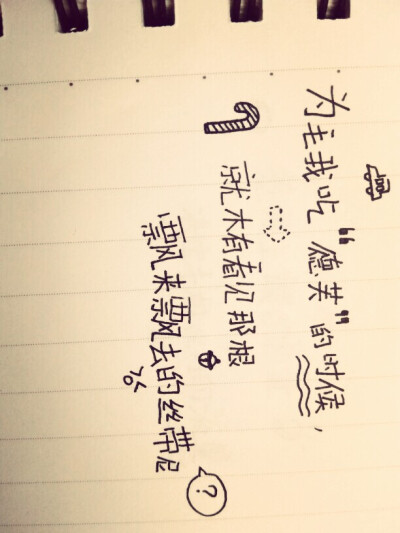 为主我吃“德芙”的时候，
就木有看见那根
飘来飘去的丝带尼
?